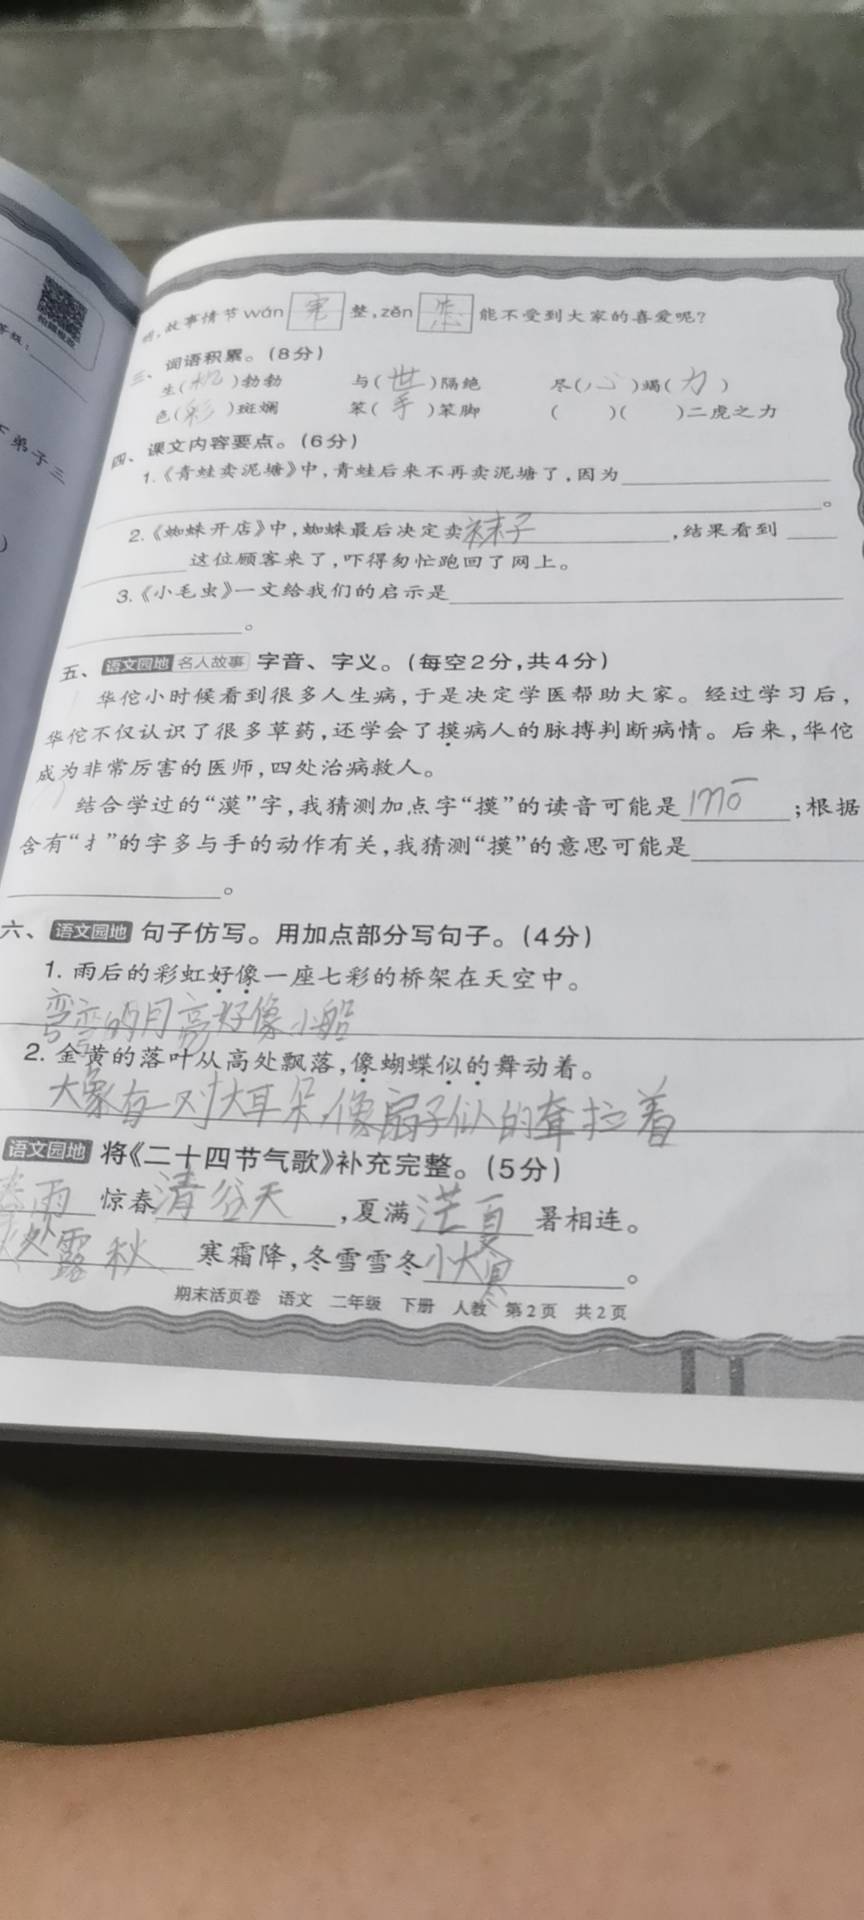 等级：
不弟子三
明,故事情节wán 完 整,zěn 怎 能不受到大家的喜爱呢?
三、词语积累。(8分)
生(机)勃勃 与(世)隔绝 尽(心)竭(力)
色(彩)斑斓 笨(手)笨脚 ( )( )二虎之力
四、课文内容要点。(6分)
1.《青蛙卖泥塘》中,青蛙后来不再卖泥塘了,因为
。
2.《蜘蛛开店》中,蜘蛛最后决定卖袜子,结果看到
这位顾客来了,吓得匆忙跑回了网上。
3.《小毛虫》一文给我们的启示是
。
五、语文园地 名人故事 字音、字义。(每空2分,共4分)
华佗小时候看到很多人生病,于是决定学医帮助大家。经过学习后,
华佗不仅认识了很多草药,还学会了摸病人的脉搏判断病情。后来,华佗
成为非常厉害的医师,四处治病救人。
结合学过的“漠”字,我猜测加点字“摸”的读音可能是mō;根据
含有“扌”的字多与手的动作有关,我猜测“摸”的意思可能是
。
六、语文园地 句子仿写。用加点部分写句子。(4分)
1. 雨后的彩虹好像一座七彩的桥架在天空中。
弯弯的月亮好像小船
2. 金黄的落叶从高处飘落,像蝴蝶似的舞动着。
大象有一对大耳朵,像扇子似的耷拉着
语文园地 将《二十四节气歌》补充完整。(5分)
春雨惊春清谷天,夏满芒夏暑相连。
秋处露秋寒霜降,冬雪雪冬小大寒。
期末活页卷 语文 二年级 下册 人教 第2页 共2页